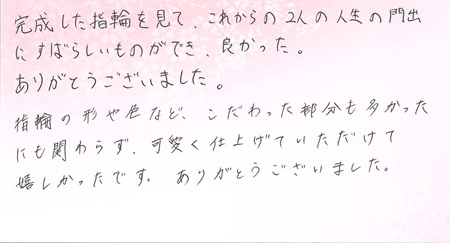 完成した指輪を見て、これからの2人の人生の門出
にすばらしいものができ、良かった。
ありがとうございました。
指輪の形や色など、こだわった部分も多かった
にも関わらず、可愛く仕上げていただけて
嬉しかったです。ありがとうございました。